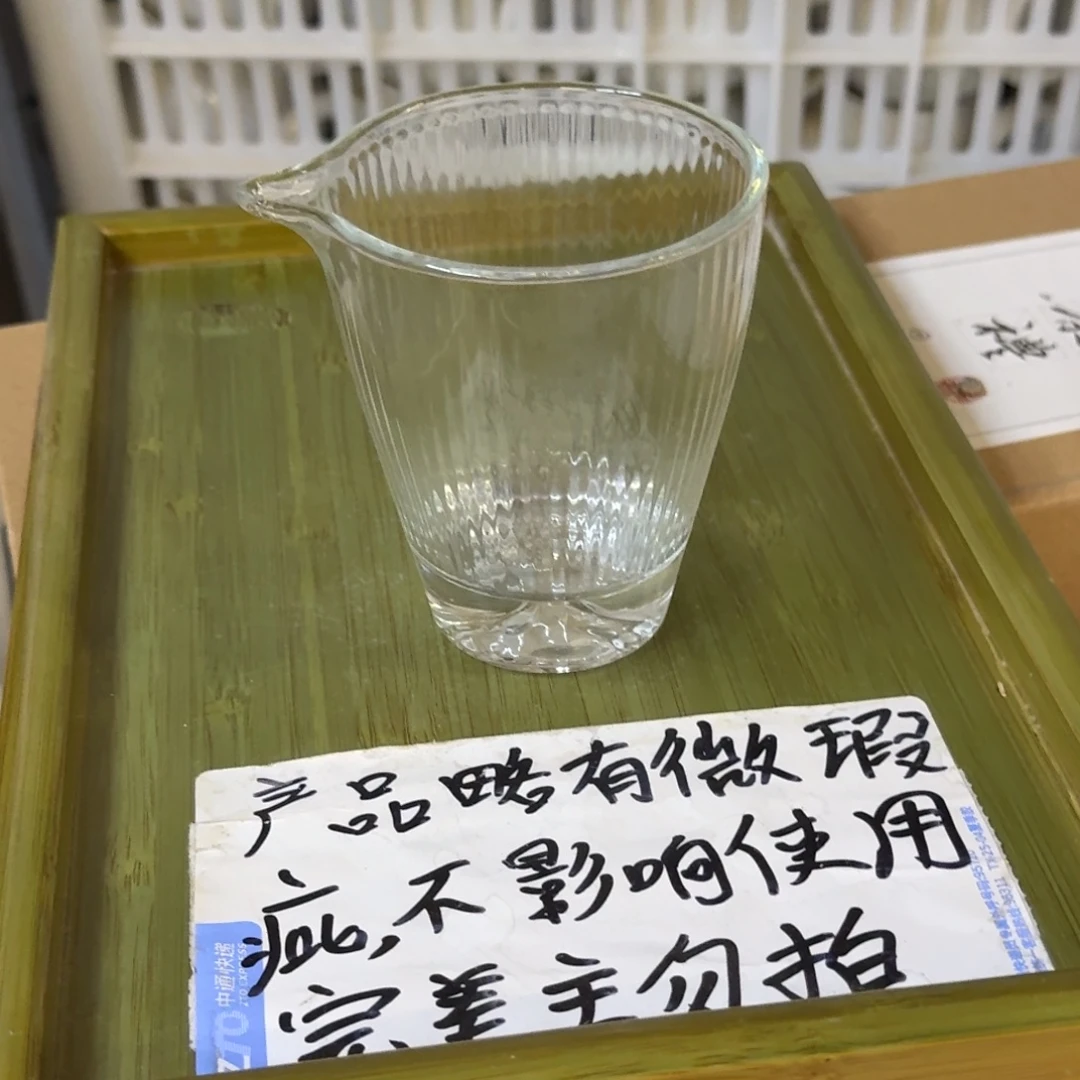 产品略有微瑕
疵,不影响使用
完美主勿拍
中通快递
ZTO EXPRESS
ZTO
禮